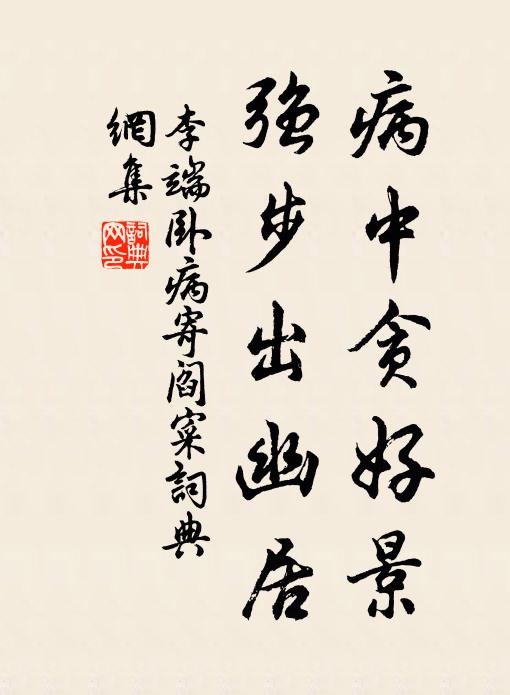 病中贪好景
强步出幽居
李端卧病寄阎寀詞典
網集
詞典
网印